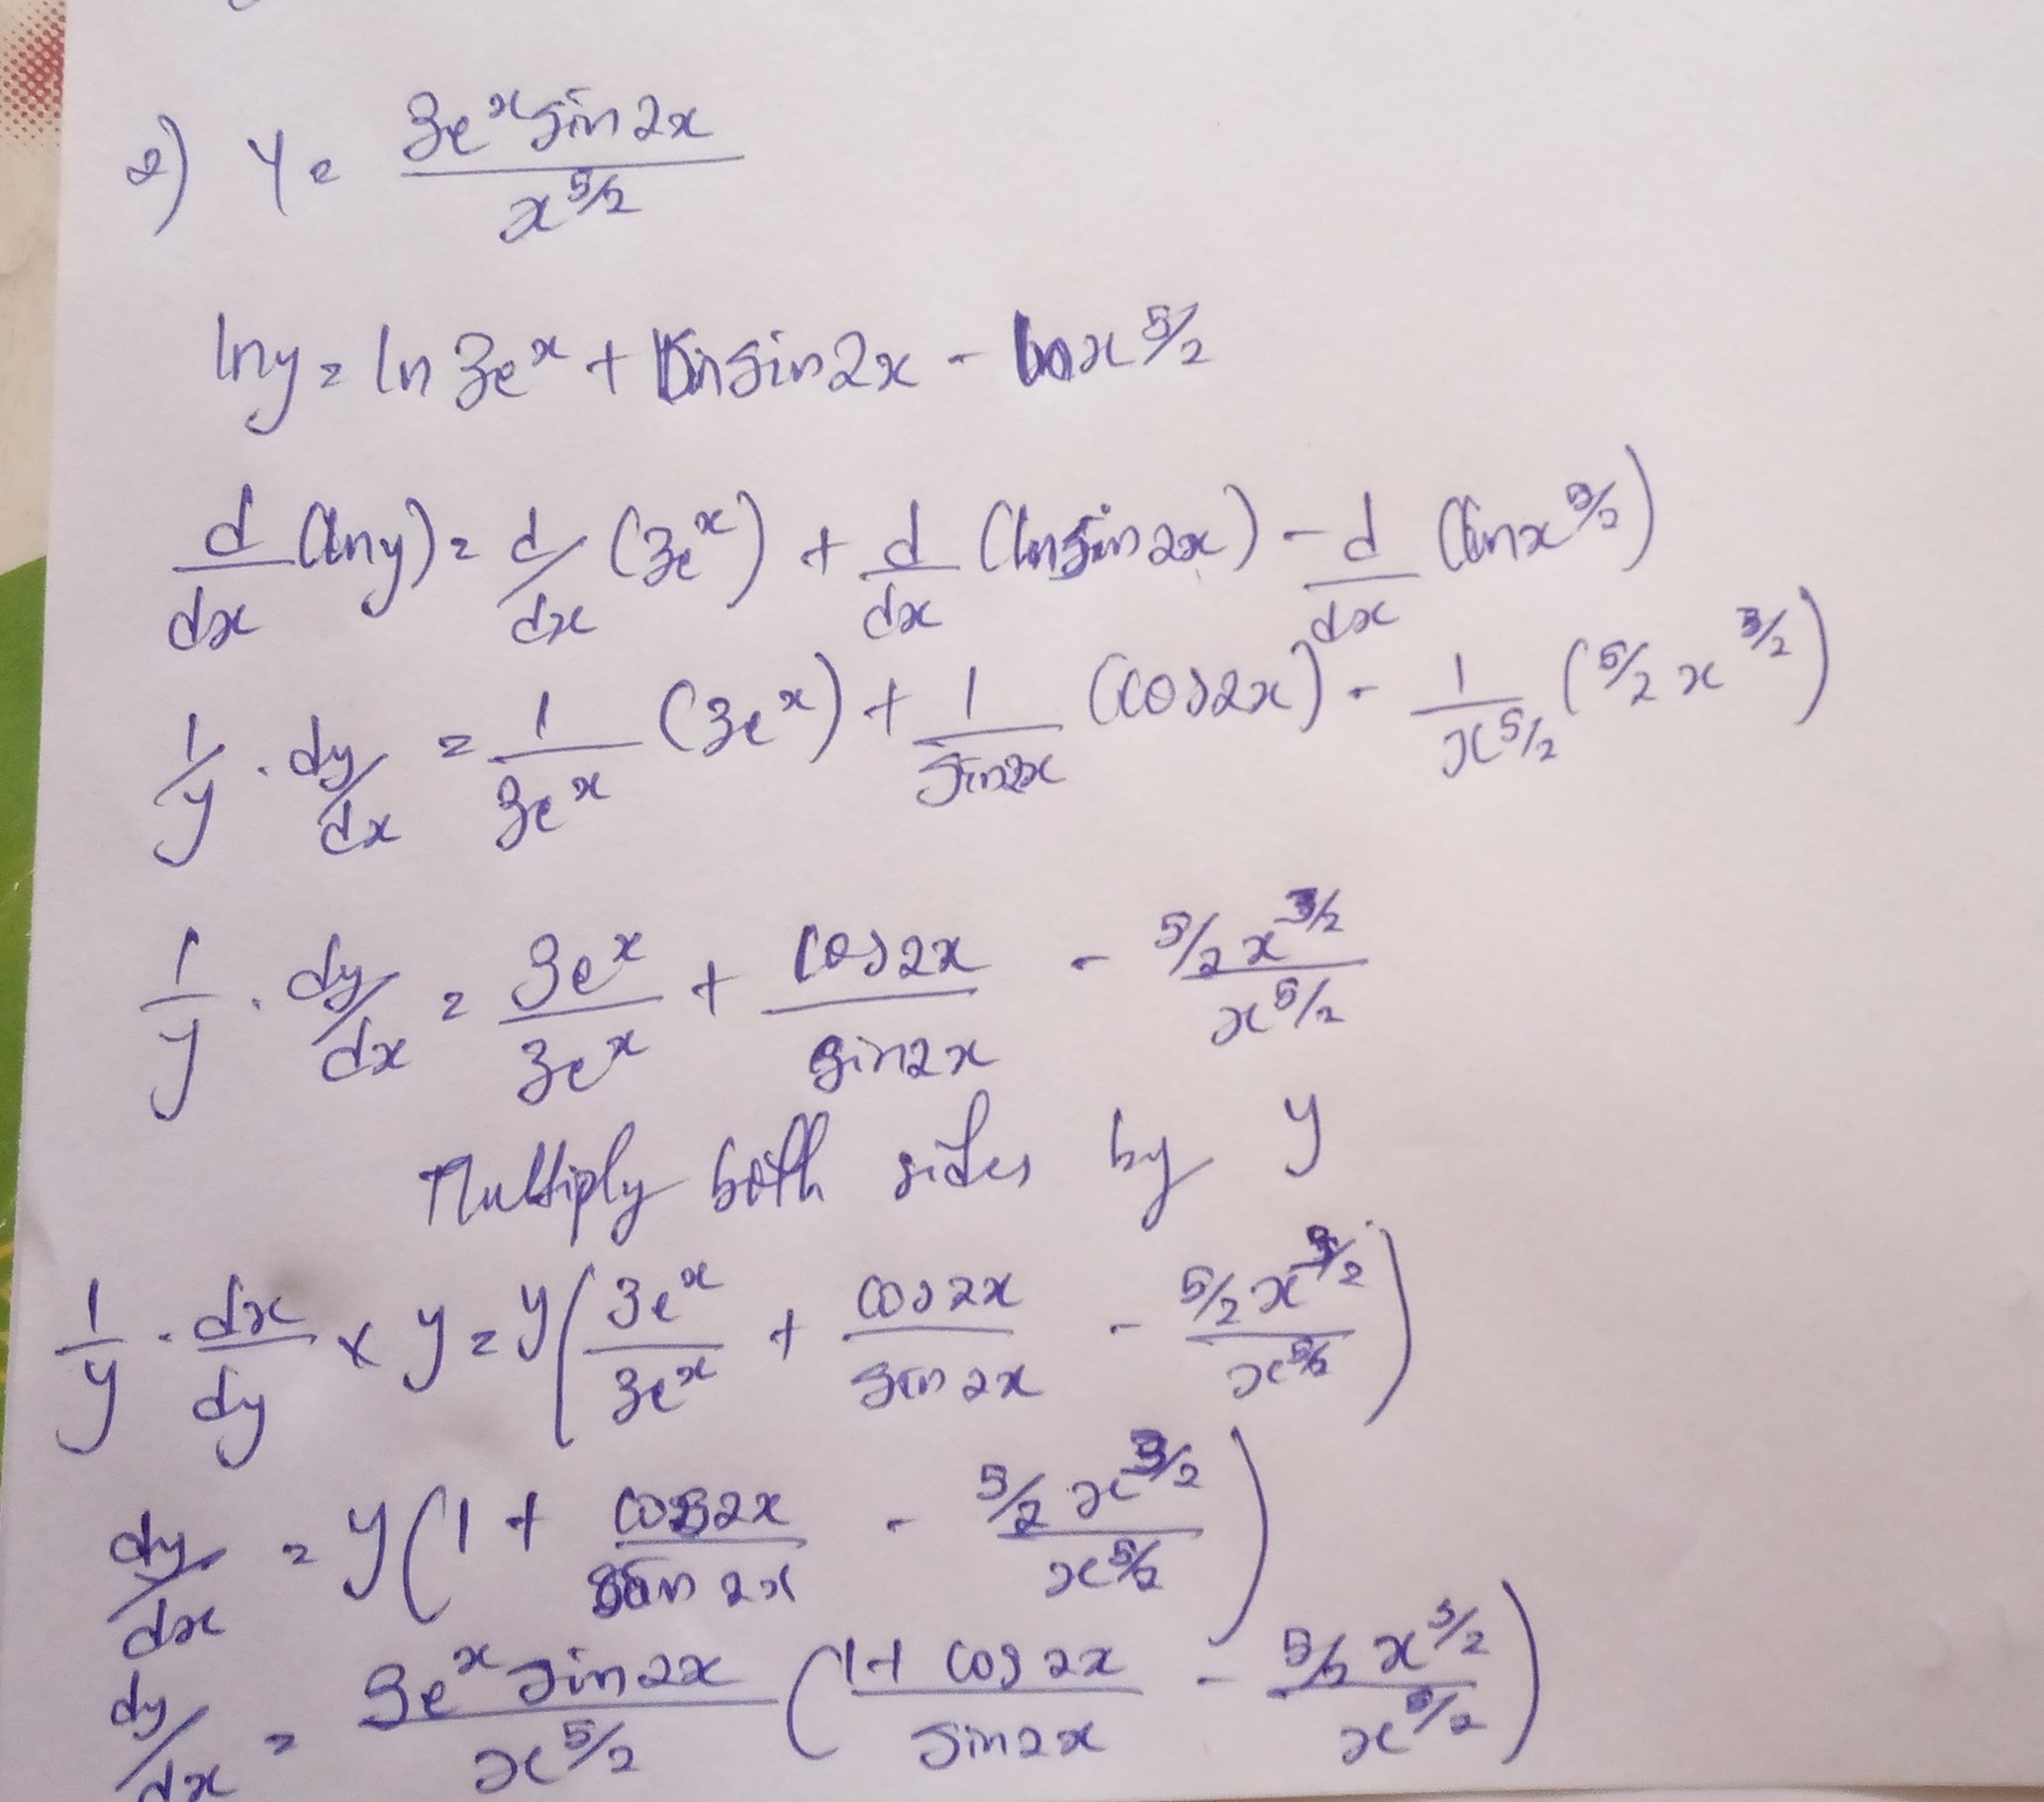 2) y = 3eˣ sin2x / x^5/2
lny = ln 3eˣ + ln sin2x - ln x^5/2
d/dx (lny) = d/dx (3eˣ) + d/dx (ln sin 2x) - d/dx (ln x^5/2)
1/y · dy/dx = 1/3eˣ (3eˣ) + 1/sin2x (cos2x) - 1/x^5/2 (5/2 x^3/2)
1/y · dy/dx = 3eˣ/3eˣ + cos2x/sin2x - 5/2 x^3/2 / x^5/2
Multiply both sides by y
1/y · dx/dy × y = y(3eˣ/3eˣ + cos2x/sin2x - 5/2 x^3/2 / x^5/2)
dy/dx = y(1 + cos2x/sin2x - 5/2 x^3/2 / x^5/2)
dy/dx = 3eˣ sin2x / x^5/2 (1 + cos2x / sin2x - 5/2 x^3/2 / x^5/2)